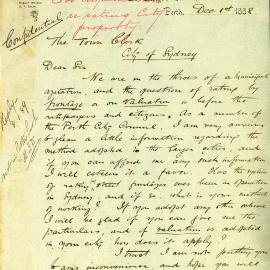 re rating City
property
Confidential
Perth, Decr 1st 1888
The Town Clerk
City of Sydney
Dear Sir
We are in the throes of a municipal
agitation, and the question of rating by
frontage or on valuation is before the
ratepayers and citizens. As a member of
the Perth City Council, I am very anxious
to glean a little information regarding the
method adopted in the larger cities, and
if you can afford me any such information
I will esteem it a favor. Has the system
of rating street frontages ever been in operation
in Sydney, and if so what is your experience
of working it. If you adopt any other scheme
I will be glad if you can give me the
particulars, and if valuation is adopted
in your city how does it apply?
I trust I am not putting you
to any inconvenience and hope you will